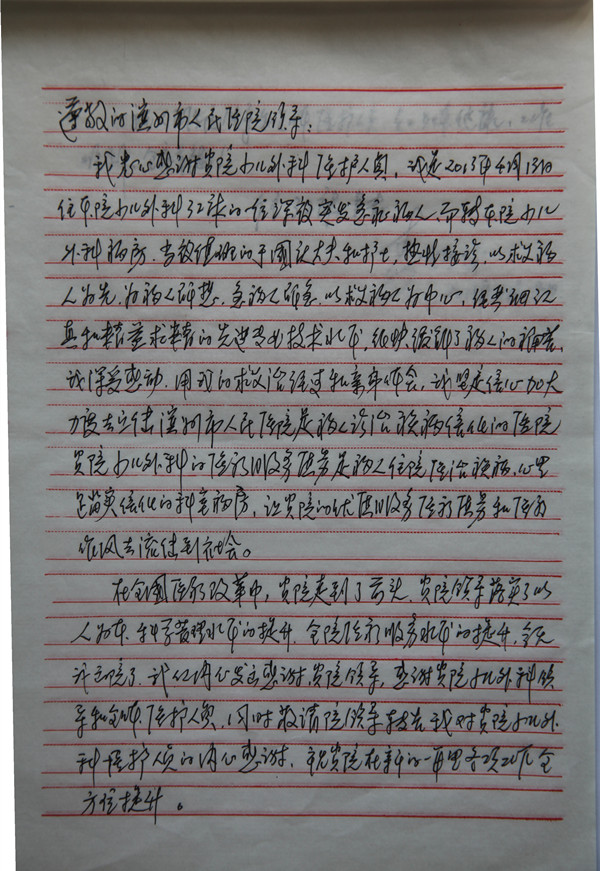 尊敬的滨州市人民医院领导:
我衷心感谢贵院小儿外科医护人员,我是2013年4月13日
住本院小儿外科32床的一位深夜突发急症病人,而转本院小儿
外科病房,当夜值班的于国认大夫和护士,热情接诊,以救病
人为先,为病人所想,急病人所急,以救病人为中心,经过细认
真和精益求精的先进专业技术水平,很快缓解了病人的痛苦,
我深受感动,用我的救治经过和亲身体会,我坚定信心加大
力度去宣传滨州市人民医院是病人诊治疾病信任的医院
贵院小儿外科的医疗服务质量是病人住院医治疾病,心里
踏实信任的科室病房,让贵院的优质服务医疗质量和医为
作风去流传到社会。
在全国医疗改革中,贵院走到了前头,贵院领导落实了以
人为本,科学管理水平的提升,全院医疗服务水平的提升,今天
我出院了,我从内心发出感谢,贵院领导,感谢贵院小儿外科领
导和全体医护人员,同时敬请院领导转告我对贵院小儿外
科医护人员的内心感谢,祝贵院在新的一年里各项工作全
方位提升。